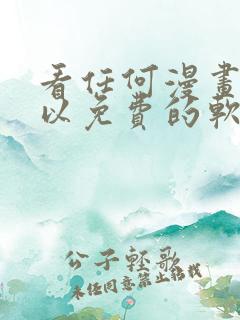 看任何漫畫
以免費的軟
公子輕歌
未经同意禁止转载